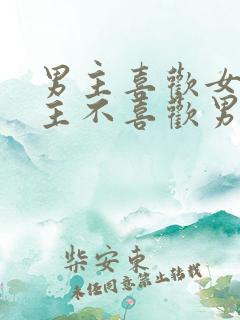 男主喜歡女
主不喜歡男
柴安東
未任同意禁止转载